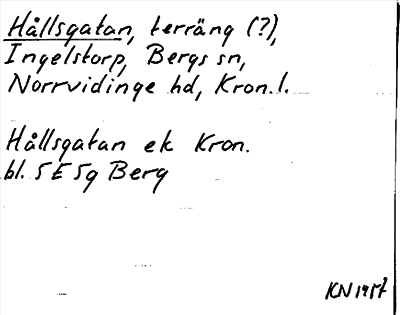 Hållsgatan, terräng (?),
Ingelstorp, Bergs sn,
Norrvidinge hd, Kron. l.
Hållsgatan ek Kron.
bl. 5 E 5g Berg
KN